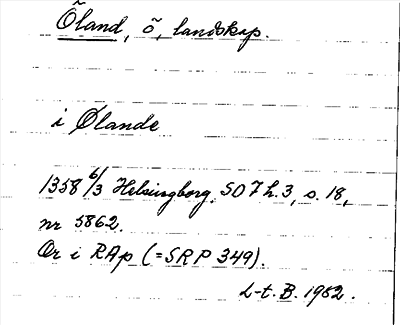 Öland, ö, landskap.
i Ølande
1358 6/3 Helsingborg. SD 7 h. 3, s. 18,
nr 5862.
Or i RAp (=SRP 349).
L-t. B. 1982.